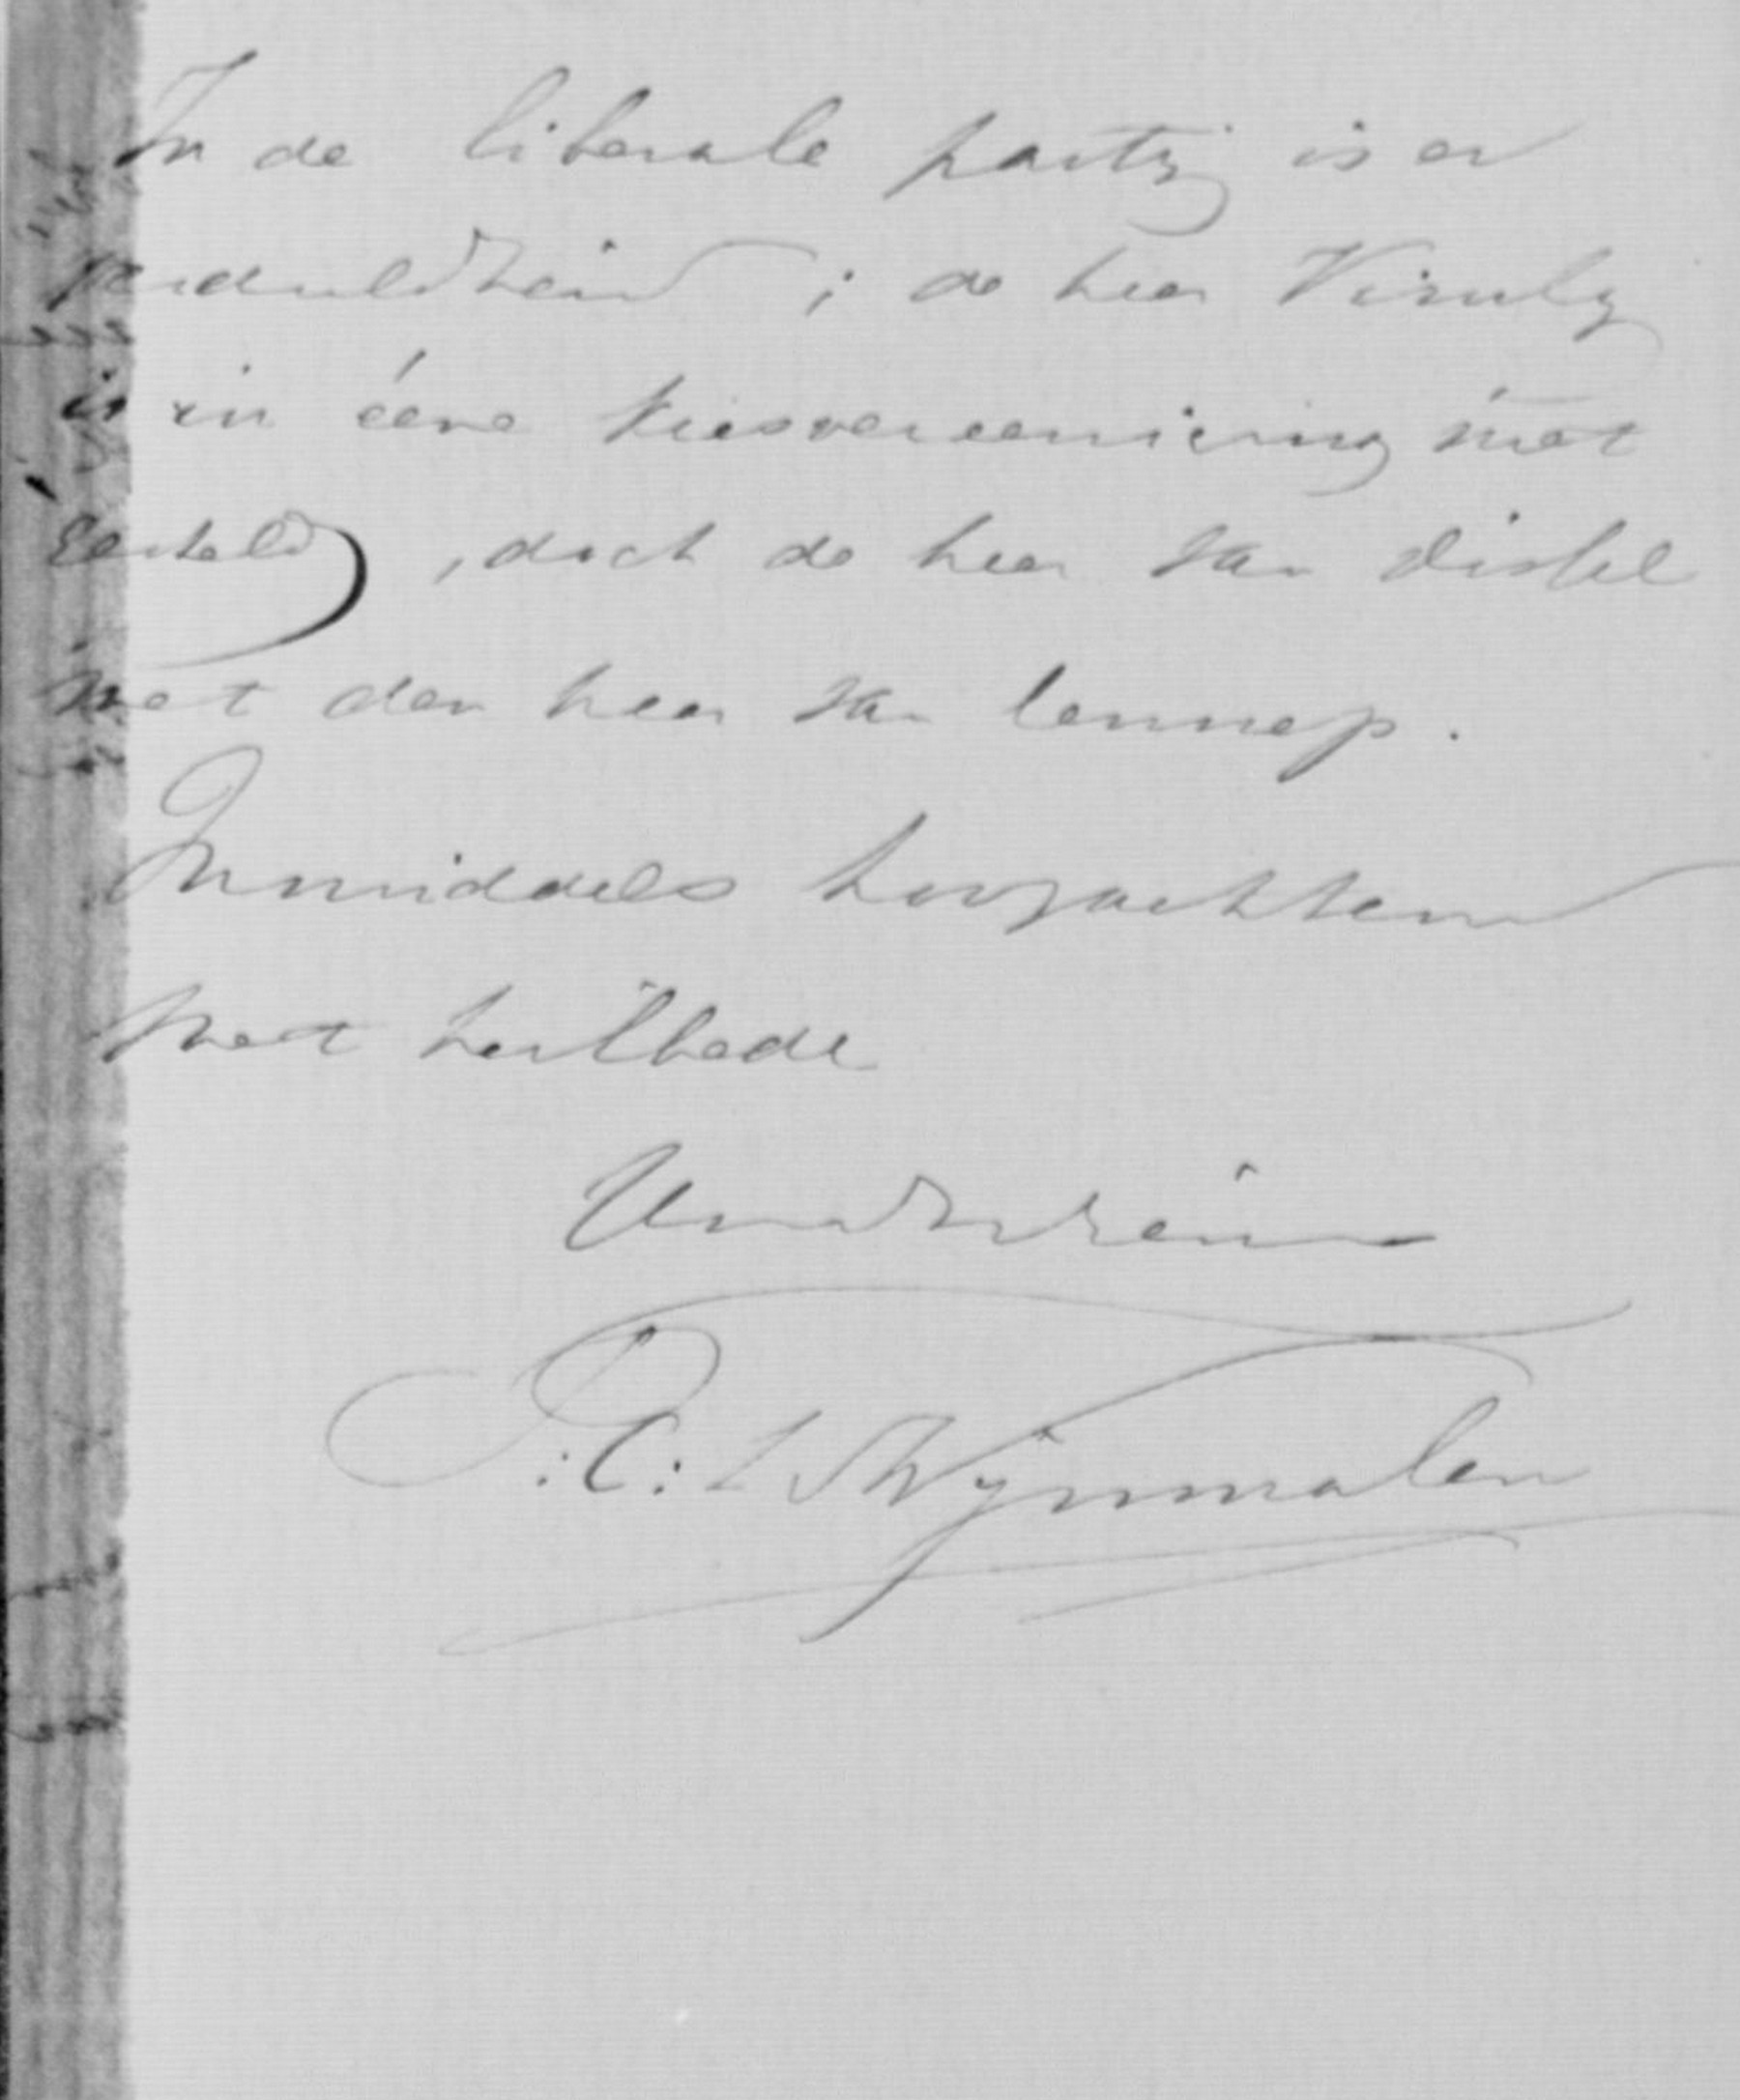 In de liberale partij is er
verdeeldheid; de heer Viruly
is in ééne kiesvereeniging niet
gesteld, doch de heer van Dissel
met den heer van Lennep.
Inmiddels hoogachtend
Met heilbede
Uw dw dien
P: C: L Wijnmalen